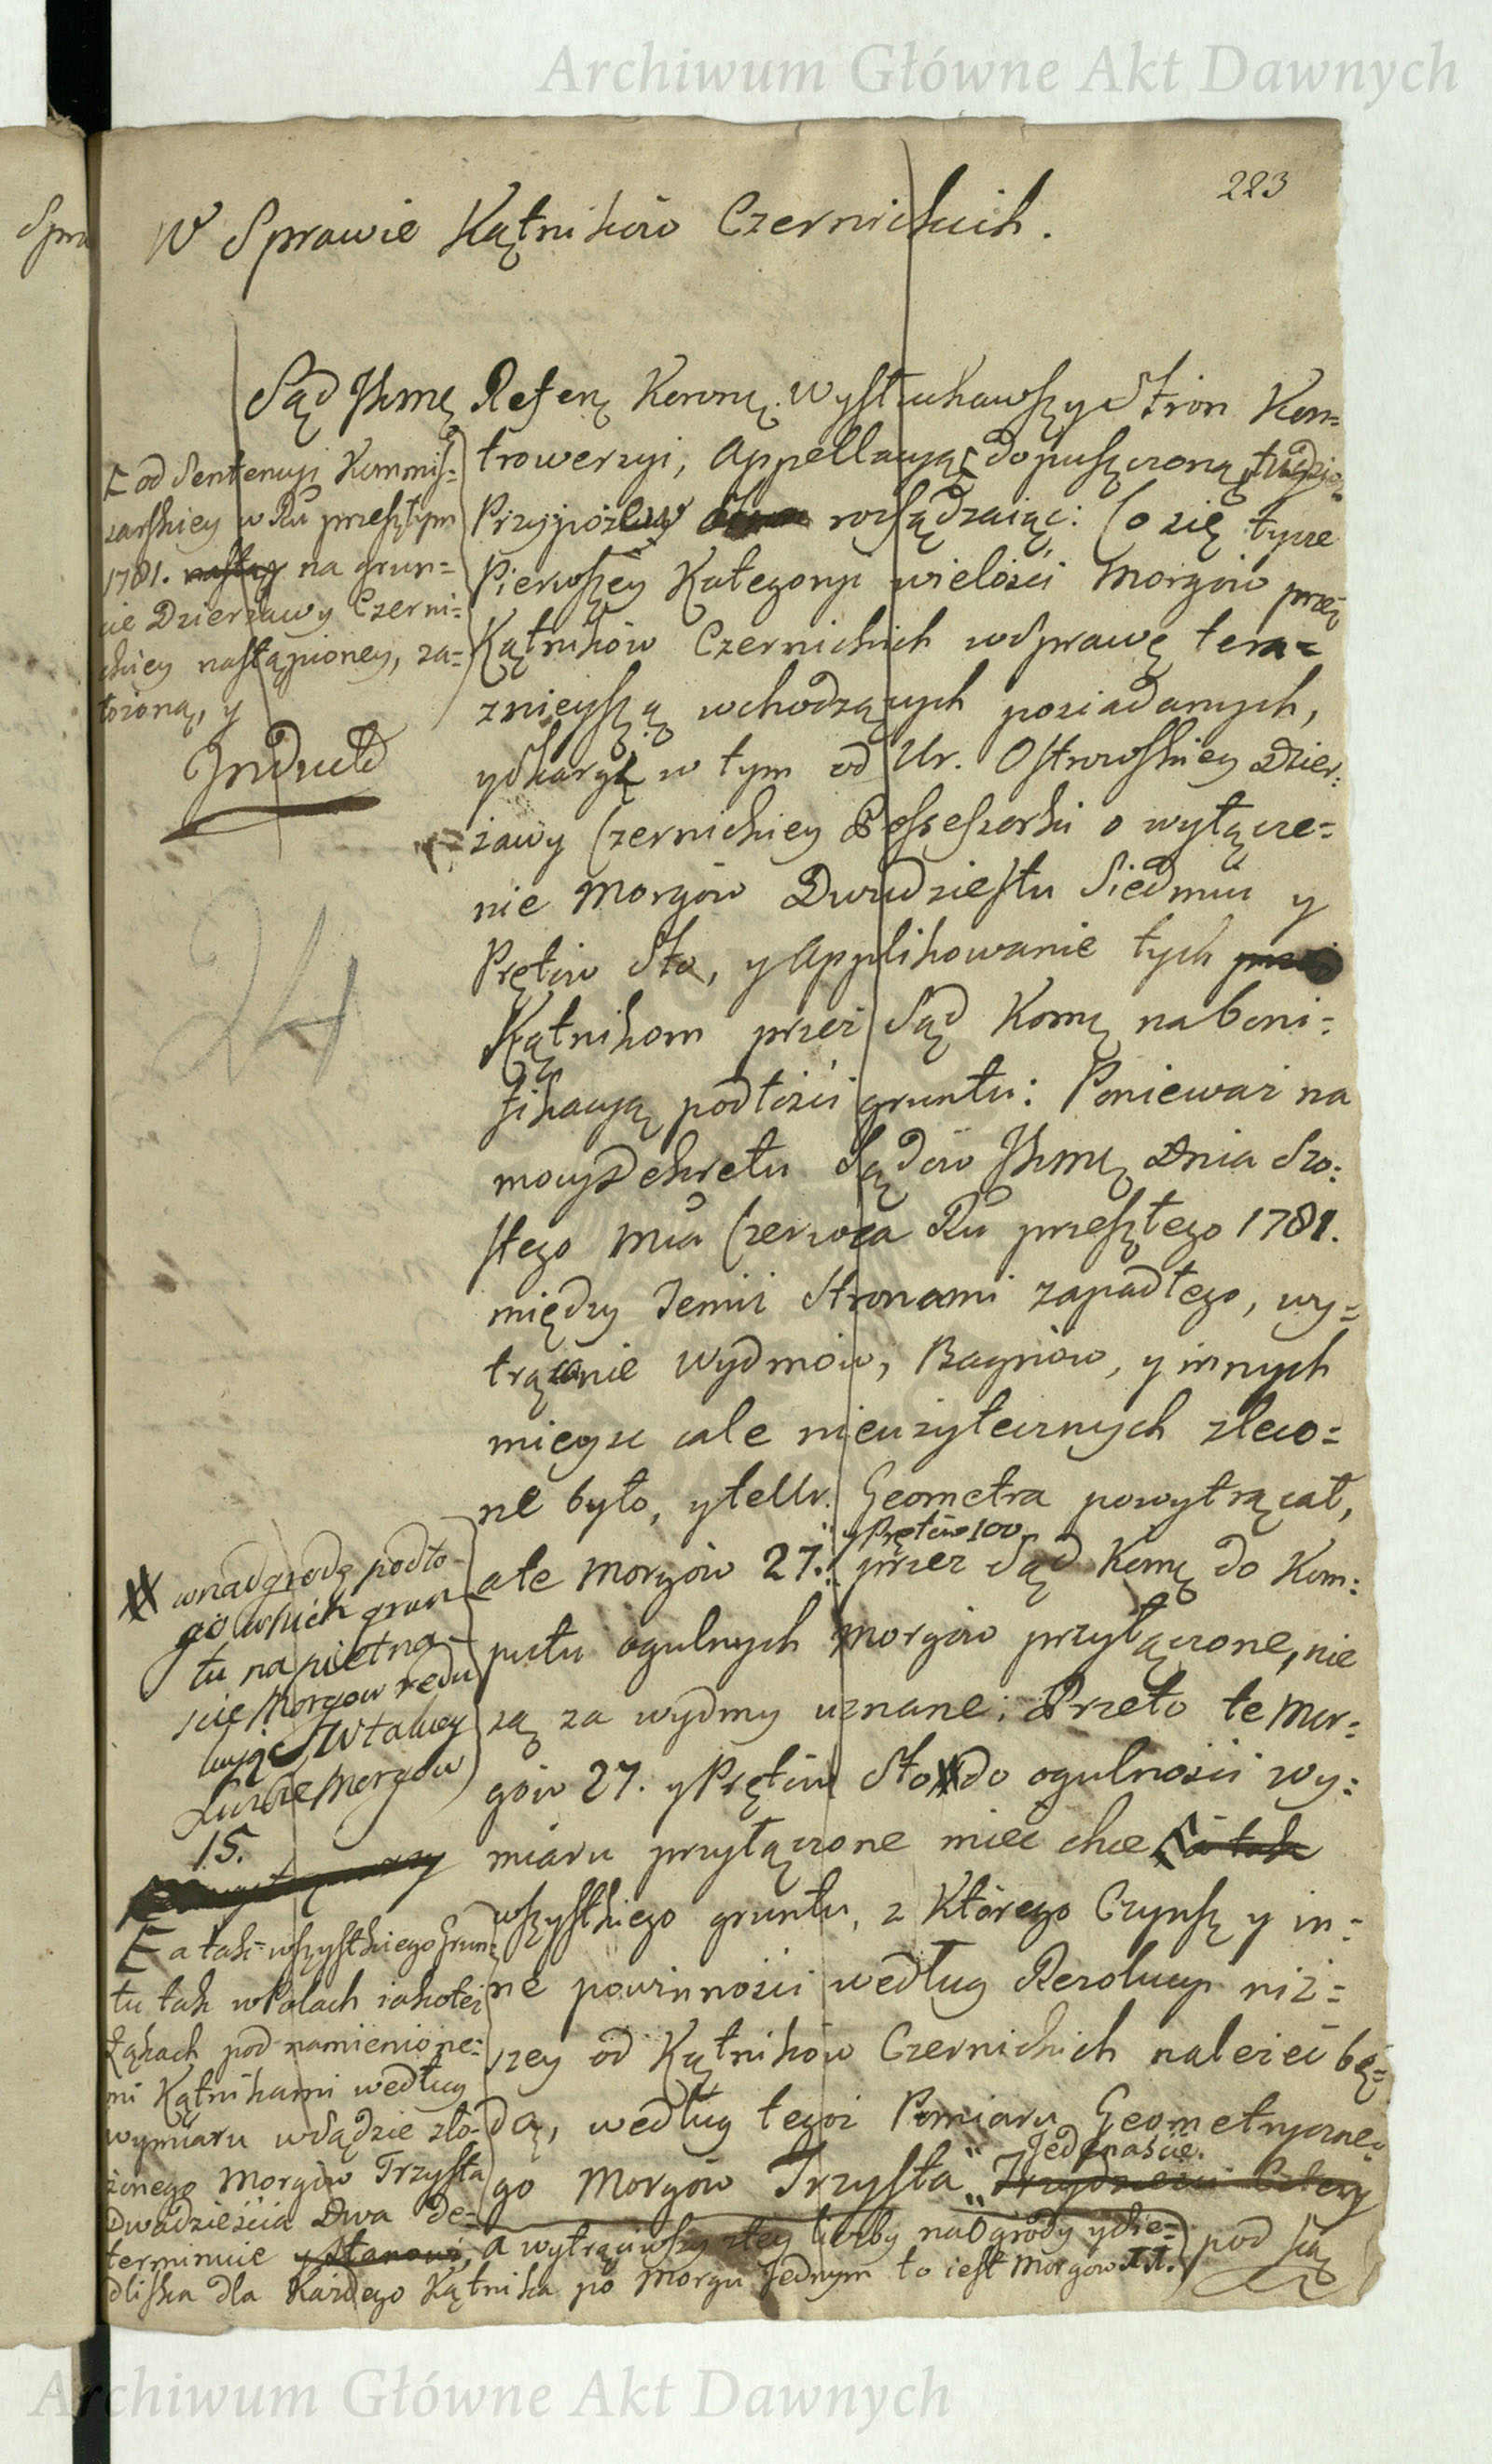 Archiwum Główne Akt Dawnych
223
W Sprawie Kątnikòw Czernickich.
Sąd JKmę Refenę Koronę. Wysłuchawszy Stron Kon=
trowersyi, Appellacyją dopuszczoną,
Przypozew rozsądzaiąc: Co się tycze
Pierwszey Kategoryi wielości Morgòw przez
Kątnikòw Czernickich w Sprawę tera=
znieyszą wchodzących posiadanych,
y Skargę w tym od Ur. Ostrowskiey Dzier:
żawy Czernickiey Possessorki o wyłącze=
nie Morgòw Dwudziestu Siedmiu y
Prętòw Sto, y Applikowanie tych
Kątnikom przez Sąd Komę na boni=
fikacyją podłości gruntu: Ponieważ na
mocy Dekretu Sądòw JKmę Dnia Szo:
stego Mca Czerwca Ru przeszłego 1781.
między Temiż Stronami zapadłego, wy=
trącenie Wydmòw, Bagnòw, y innych
mieysc cale nieużytecznych zleco=
ne było, y te Ur. Geometra powytrącał,
y Prętòw 100
ale Morgòw 27. przez Sąd Komę do Kom:
putu ogulnych Morgòw przyłączone, nie
są za wydmy uznane; Przeto te Mor=
gòw 27. y Prętòw Sto do ogulności wy:
miaru przyłączone mieć chce a tak
wszystkiego gruntu, z Którego Czynsz y in=
ne powinności według Rezolucyi niż=
szey od Kątnikòw Czernickich należeć bę=
dą, według tegoż Pomiaru Geometryczne=
Jedenaście.
go Morgòw Trzysta
od Sentencyi Kommis=
sarskiey w Ru przeszłym
1781. na grun=
cie Dzierzawy Czerni=
ckiey nastąpioney, za=
łożoną, y
Induct
24
w nadgrodę podło
go wskich grun
tu na piętna
ście Morgow redu
kuiąc, w takiey
Liczbie Morgow
15.
a tak wszystkiego Grun=
tu tak w Polach iako też
Łąkach pod namienione=
mi Kątnikami według
wymiaru w Sądzie zło=
żonego Morgòw Trzysta
Dwadzieścia Dwa De=
terminuie y stanowi, a wytrąciwszy z tey liczby na Ogrody y Sie=
dliska dla Każdego Kątnika po Morgu Jednym to iest Morgow 11. pod
Archiwum Główne Akt Dawnych